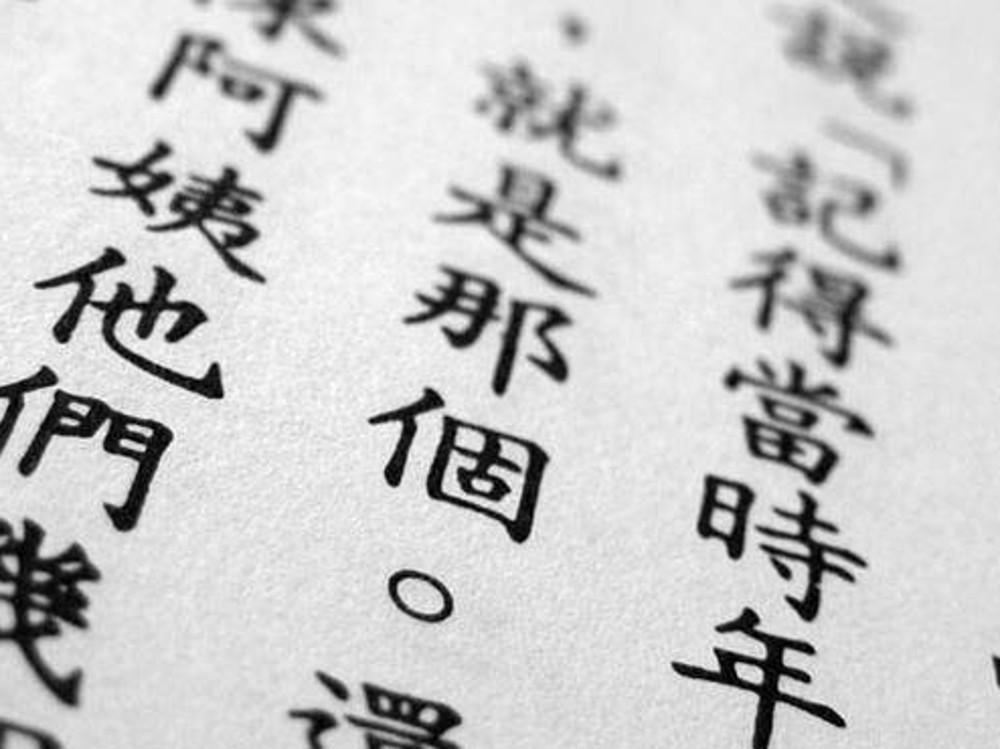 說「記得當時年
就是那個。還
阿姨他們